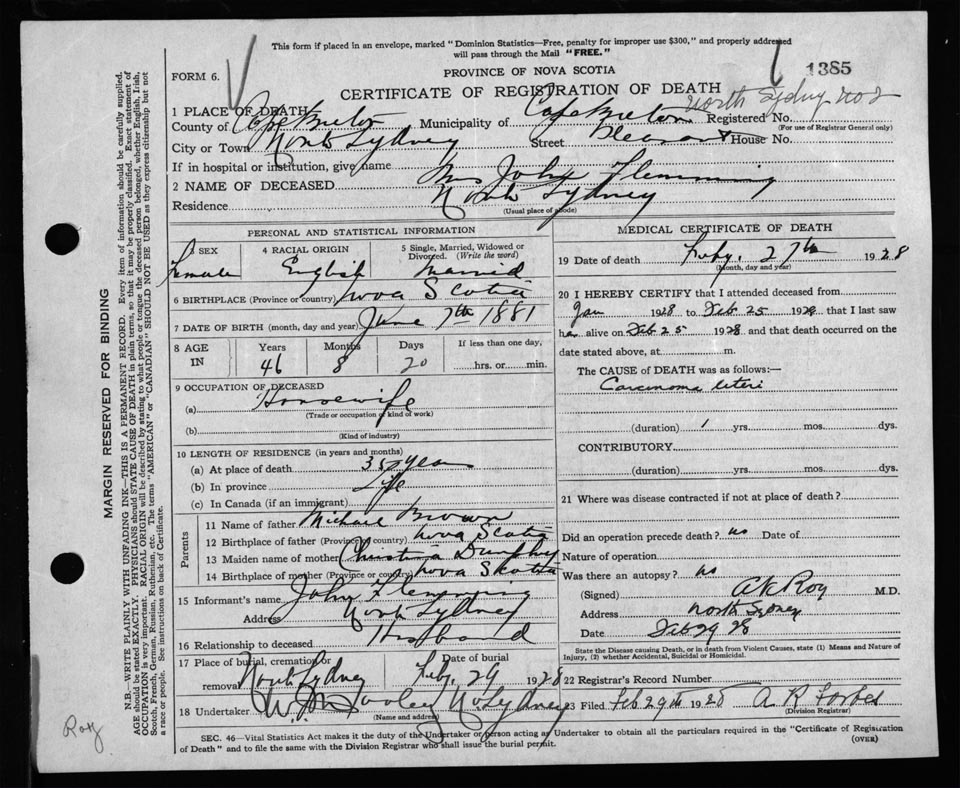 This form if placed in an envelope, marked "Dominion Statistics—Free, penalty for improper use $300," and properly addressed
will pass through the Mail "FREE."
FORM 6.
PROVINCE OF NOVA SCOTIA
1385
CERTIFICATE OF REGISTRATION OF DEATH
North Sydney no 2
1 PLACE OF DEATH
County of Cape Breton Municipality of Cape Breton Registered No.
(For use of Registrar General only)
City or Town North Sydney Street Pleasant House No.
If in hospital or institution, give name
2 NAME OF DECEASED Mrs John Flemming
Residence North Sydney
(Usual place of abode)
PERSONAL AND STATISTICAL INFORMATION
3 SEX Female
4 RACIAL ORIGIN English
5 Single, Married, Widowed or Divorced. (Write the word) Married
6 BIRTHPLACE (Province or country) Nova Scotia
7 DATE OF BIRTH (month, day and year) June 7th 1881
8 AGE IN Years 46 Months 8 Days 20 If less than one day, hrs. or min.
9 OCCUPATION OF DECEASED
(a) Housewife
(Trade or occupation or kind of work)
(b)
(Kind of industry)
10 LENGTH OF RESIDENCE (in years and months)
(a) At place of death 35 years
(b) In province Life
(c) In Canada (if an immigrant)
Parents
11 Name of father Michael Brown
12 Birthplace of father (Province or country) Nova Scotia
13 Maiden name of mother Christina Dunphy
14 Birthplace of mother (Province or country) Nova Scotia
15 Informant's name John Flemming
Address North Sydney
16 Relationship to deceased Husband
17 Place of burial, cremation or removal North Sydney Date of burial Feby. 29 1928
18 Undertaker W. Dooley No. Sydney
(Name and address)
MEDICAL CERTIFICATE OF DEATH
19 Date of death Feby. 27th 1928
(Month, day and year)
20 I HEREBY CERTIFY that I attended deceased from
Jan 1928 to Feb 25 1928 that I last saw
her alive on Feb 25 1928 and that death occurred on the
date stated above, at m.
The CAUSE of DEATH was as follows:—
Carcinoma Uteri
(duration) 1 yrs. mos. dys.
CONTRIBUTORY
(duration) yrs. mos. dys.
21 Where was disease contracted if not at place of death?
Did an operation precede death? no Date of
Nature of operation
Was there an autopsy? no
(Signed) A K Roy M.D.
Address North Sydney
Date Feb 29 28
State the Disease causing Death, or in death from Violent Causes, state (1) Means and Nature of
Injury, (2) whether Accidental, Suicidal or Homicidal.
22 Registrar's Record Number
23 Filed Feb 29th 1928 A. R. Forbes
(Division Registrar)
SEC. 46—Vital Statistics Act makes it the duty of the Undertaker or person acting as Undertaker to obtain all the particulars required in the "Certificate of Registration
of Death" and to file the same with the Division Registrar who shall issue the burial permit.
(OVER)
MARGIN RESERVED FOR BINDING
N.B.—WRITE PLAINLY WITH UNFADING INK—THIS IS A PERMANENT RECORD. Every item of information should be carefully supplied.
AGE should be stated EXACTLY. PHYSICIANS should STATE CAUSE OF DEATH in plain terms, so that it may be properly classified. Exact statement of
OCCUPATION is very important. RACIAL ORIGIN will be described by stating to what people or tongue the deceased person belonged, whether English, Irish,
Scotch, French, German, Russian, Ruthenian, etc. The terms "AMERICAN" or "CANADIAN" SHOULD NOT BE USED as they express citizenship but not
a race or people. See instructions on back of Certificate.
Roy